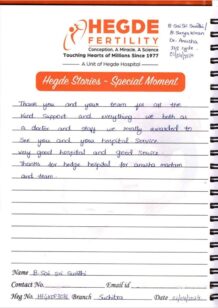 B Sai Sri Swathi /
B. Surya kiran
Dr. Anusha
HEGDE
FERTILITY
Conception, A Miracle. A Science
Touching Hearts of Millions Since 1977
A Unit of Hegde Hospital
Hegde Stories - Special Moment
Thank you and your team for all the
kind support and everything we both as
a doctor and staff we really awarded to
see you and you hospital service
very good hospital and good service
Thanks for hedge hospital for anusha madam
and team.
Name B. Sai Sri Swathi
Contact No. Email id
Heg No. Branch Suchitra Date